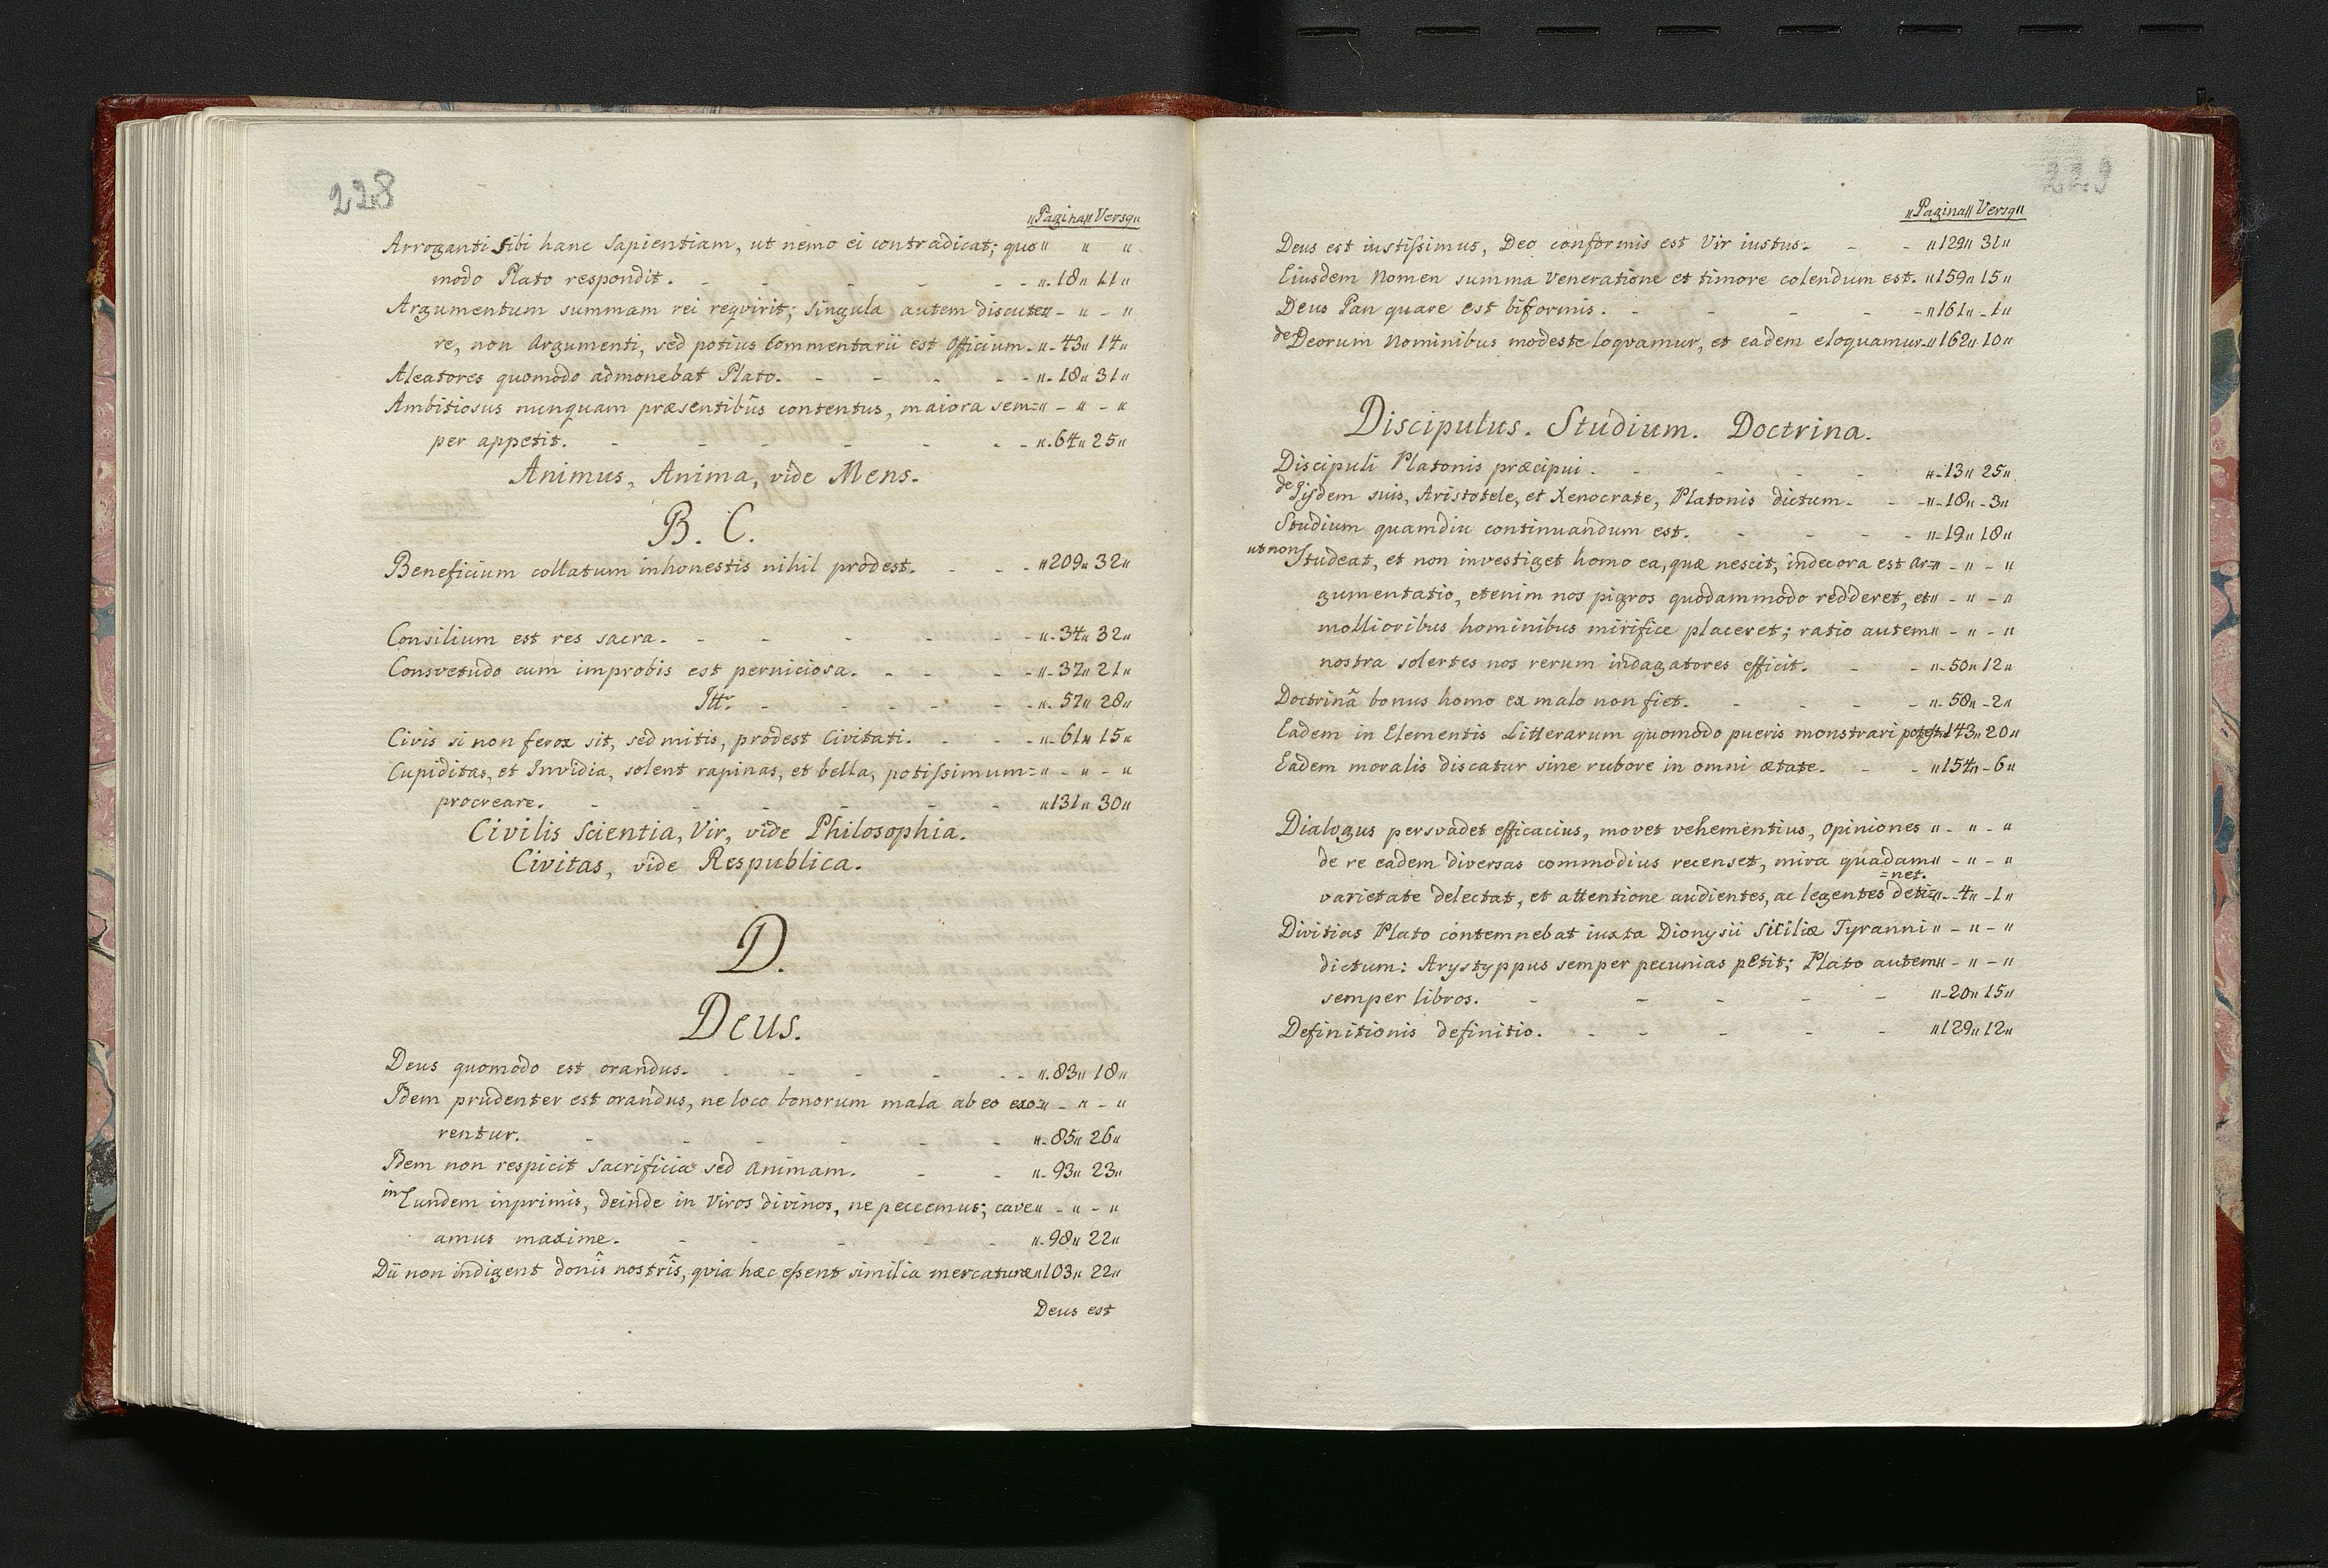 228
„Pagina„Versq„
Arroganti sibi hanc Sapientiam, ut nemo ei contradicat; quo„ „ „
modo Plato respondit. - - - - - - „-18„ 11„
Argumentum summam rei reqvirit; singula autem discute= „ - „ - „
re, non Argumenti, sed potius Commentarii est Officium. „- 43„ 14„
Aleatores quomodo admonebat Plato. - - - - - „- 18„ 31„
Ambitiosus nunquam præsentibûs contentus, maiora sem=„ - „ - „
per appetit. - - - - - - - „-64„ 25„
Animus, Anima, vide Mens.
B. C.
Beneficium collatum inhonestis nihil prodest. - - - „209„ 32„
Consilium est res sacra. - - - - - - „-34„ 32„
Consvetudo cum improbis est perniciosa. - - - - „-37„ 21„
Itt. - - - - - - „- 57„ 28„
Civis si non ferox sit, sed mitis, prodest Civitati. - - - „-61„ 15„
Cupiditas, et Invidia, solent rapinas, et bella, potissimum=„ - „ - „
procreare. - - - - - - „131„ 30„
Civilis Scientia, Vir, vide Philosophia.
Civitas, vide Respublica.
D.
Deus.
Deus quomodo est orandus. - - - - - - „-83„ 18„
Idem prudenter est orandus, ne loco bonorum mala ab eo exo=„ - „ - „
rentur. - - - - - - „-85„ 26„
Idem non respicit Sacrificia sed Animam. - - „- 93„ 23„
in Eundem inprimis, deinde in Viros divinos, ne peccemus; cave„ - „ - „
amus maxime. - - - - - „-98„ 22„
Dii non indigent donîs nostrîs, qvia hæc essent similia mercaturæ„103„ 22„
Deus est
229
„Pagina„ Versq„
Deus est iustissimus, Deo conformis est Vir iustus. - - „129„ 31„
Eiusdem Nomen summa Veneratione et timore colendum est. „159„ 15„
Deus Pan quare est biformis. - - - - - „161„ -1„
de Deorum Nominibus modeste loqvamur, et eadem eloquamur.„162„ 10„
Discipulus. Studium. Doctrina.
Discipuli Platonis præcipui. - - - - „-13„ 25„
de Iisdem suis, Aristotele, et Xenocrate, Platonis dictum. - - „- 18„ -3„
Studium quamdiu continuandum est. - - - - „-19„ 18„
ut non Studeat, et non investiget homo ea, quæ nescit, indecora est Ar=„ - „ - „
gumentatio, etenim nos pigros quodammodo redderet, et„ - „ - „
mollioribus hominibus mirifice placeret; ratio autem„ - „ - „
nostra solertes nos rerum indagatores efficit. - - „-50„ 12„
Doctrinâ bonus homo ex malo non fiet. - - - - „-58„ -2„
Eadem in Elementis Litterarum quomodo pueris monstrari potest„143„ 20„
Eadem moralis discatur sine rubore in omni ætate. - - „154„ -6„
Dialogus persvadet efficacius, movet vehementius, Opiniones „ - „ - „
de re eadem diversas commodius recenset, mira quadam„ - „ - „
=net.
varietate delectat, et attentione audientes, ac legentes deti=„- -4„ -1„
Divitias Plato contemnebat iuxta Dionysii Siciliæ Tyranni „ - „ - „
dictum: Arystyppus semper pecunias petit; Plato autem„ - „ - „
semper libros. - - - - - „-20„ 15„
Definitionis definitio. - - - - - „129„ 12„